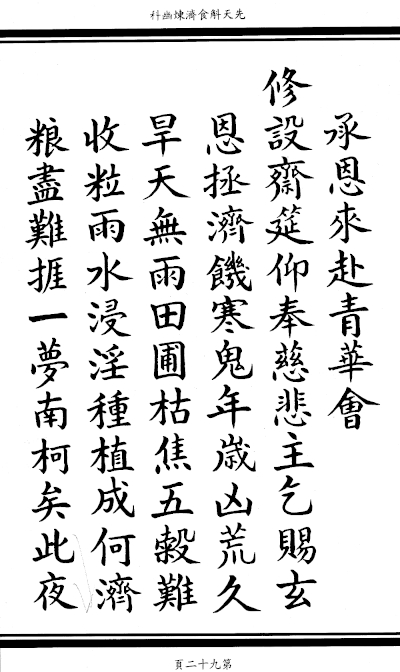 先天斛食濟煉幽科
承恩來赴青華會
修設齋筵仰奉慈悲主乞賜玄
恩拯濟饑寒鬼年歲凶荒久
旱天無雨田圃枯焦五穀難
收粒雨水浸淫種植成何濟
粮盡難捱一夢南柯矣此夜
第九十二頁